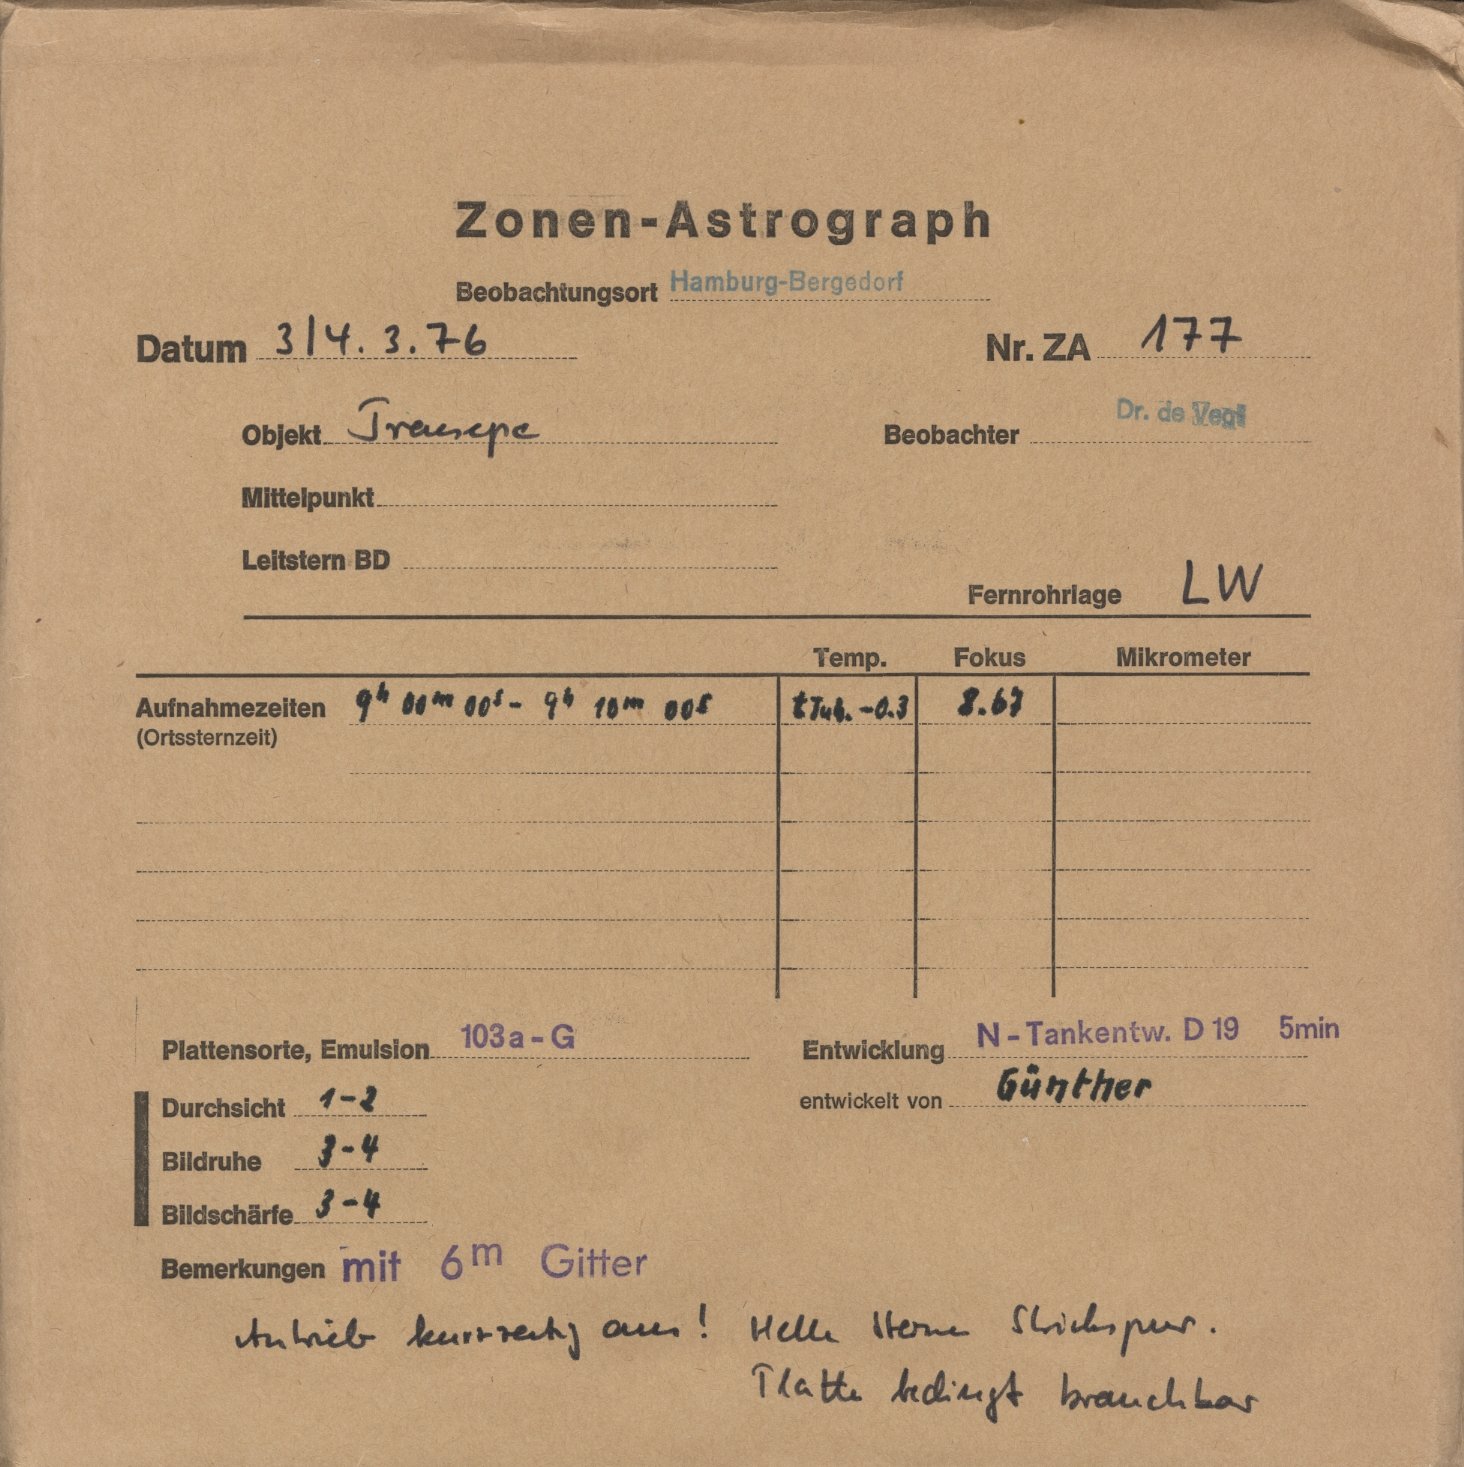 Zonen-Astrograph
Beobachtungsort Hamburg-Bergedorf
Datum 3/4.3.76 Nr. ZA 177
Objekt Praesepe Beobachter Dr. de Vegt
Mittelpunkt
Leitstern BD
Fernrohrlage LW
Temp. Fokus Mikrometer
Aufnahmezeiten 9h 00m 00s - 9h 10m 00s tTub. -0.3 8.67
(Ortssternzeit)
Plattensorte, Emulsion 103a-G Entwicklung N-Tankentw. D 19 5min
entwickelt von Günther
Durchsicht 1-2
Bildruhe 3-4
Bildschärfe 3-4
Bemerkungen mit 6m Gitter
Antrieb kurzzeitig aus! Helle Sterne Strichspur.
Platte bedingt brauchbar